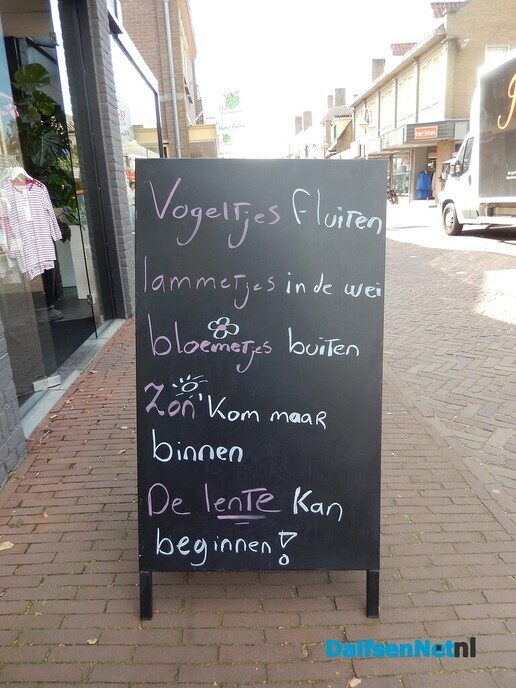 Vogeltjes fluiten
lammetjes in de wei
bloemetjes buiten
Zon, kom maar
binnen
De lente kan
beginnen!
DalfsenNet.nl